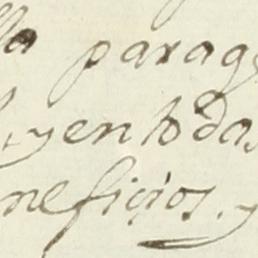 lla parag
, y en todas
neficios. y